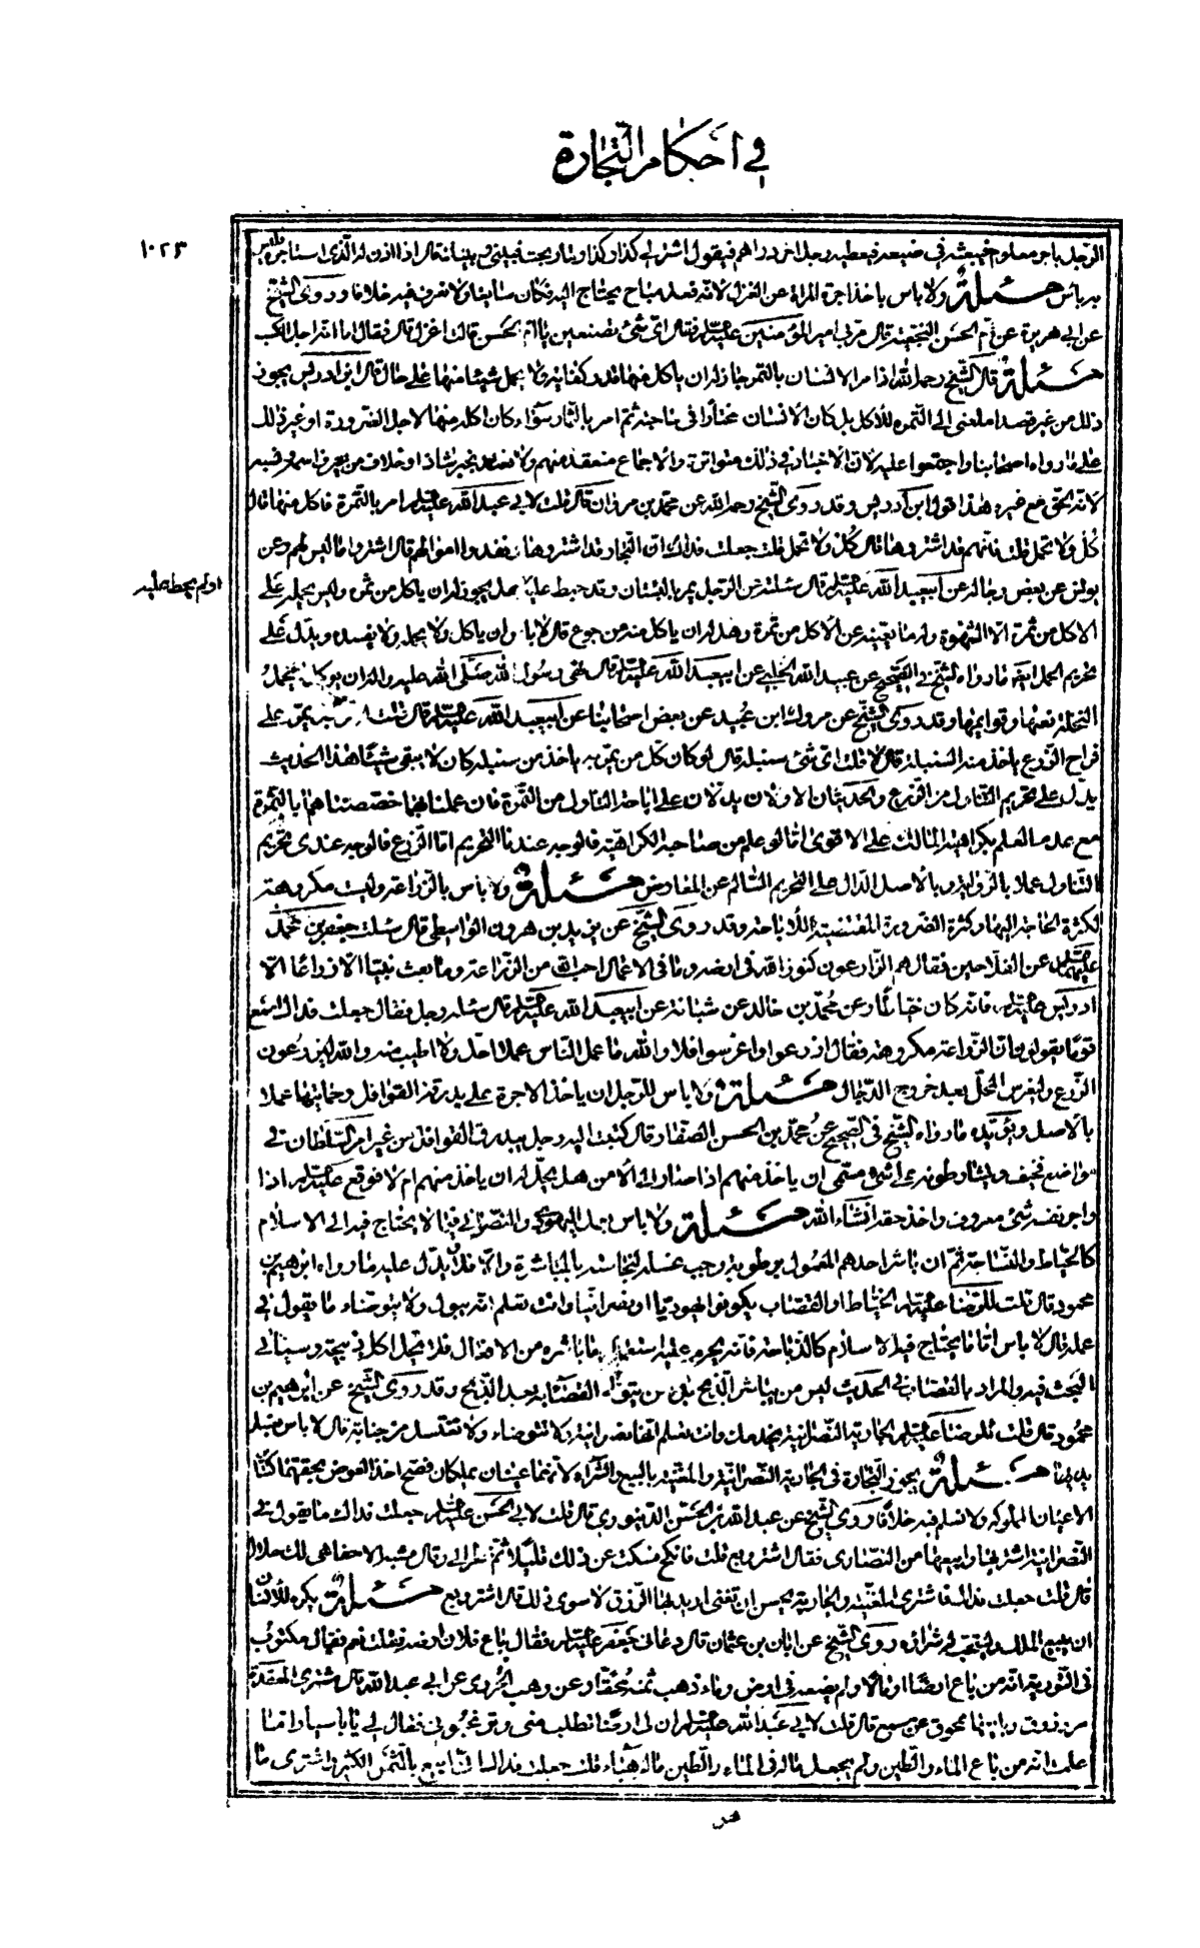 في احكام التجارة
١٠٢٣
الرجل باجر معلوم فيبعثه في ضيعته فيعطيه رجل اخر دراهم فيقول اشتر لي كذا وكذا وما ربحت فبيني وبينك قال اذا اذن له الذي استأجره فليس
به باس مسئلة ولا باس باخذ اجرة المراة عن الغزل لانه فعل مباح يحتاج اليه فكان سايغا ولا نعرف فيه خلافا وروى الشيخ
عن ابي هريرة عن ام الحسن النخعية قال مر بي امير المؤمنين عليه السلم فقال اي شئ تصنعين يا ام الحسن قالت اغزل قال فقال اما انه احل الكسب
مسئلة قال الشيخ رحمه الله اذا مر الانسان بالثمر جاز له ان ياكل منها قدر كفايته ولا يحمل شيئا منها على حال قال ابن ادريس يجوز
ذلك من غير قصد المضي الى الثمرة للأكل بل كان الانسان مختارا في حاجته ثم امر بالثمار سواء كان اكله منها لاجل الضرورة او غير ذلك
على ما رواه اصحابنا واجمعوا عليه لان الاخبار في ذلك متواترة والاجماع منعقد منهم ولا نعتد بخبر شاذ او خلاف من يعرف اسمه ونسبه
لانه الحق مع غيره هذا قول ابن ادريس وقد روى الشيخ رحمه الله عن محمد بن مروان قال قلت لابي عبد الله عليه السلم امر بالثمرة فاكل منها قال
كل ولا تحمل قلت فانهم قد اشتروها قال كل ولا تحمل قلت جعلت فداك ان التجار قد اشتروها ونقدوا اموالهم قال اشتروا ما ليس لهم وعن
يونس عن بعض رجاله عن ابيعبد الله عليه السلم قال سئلته عن الرجل يمر بالبستان وقد حيط عليه هل يجوز له ان ياكل من ثمره وليس يحمله على
او لم يحط عليه
الاكل من ثمره الا الشهوة وله ما يغنيه عن الاكل من ثمره وهل له ان ياكل منه من جوع قال لا باس ان ياكل ولا يحمله ولا يفسده ويدل على
تحريم الحمل ايضا ما رواه الشيخ في الصحيح عن عبيد الله الحلبي عن ابيعبد الله عليه السلم قال نهى رسول الله صلى الله عليه واله ان
فراح الزرع ياخذ منه السنبلة قال لا قلت اي شئ سنبلة قال لو كان كل من يمر به ياخذ من سنبله كان لا يبقى شيئا هذا الحديث
يدل على تحريم التناول من الزرع والحديثان الاولان يدلان على اباحة التناول من الثمرة فان عملنا بهما خصصناهما بالثمرة
مع عدم العلم بكراهية المالك على الاقوى اما لو علم من صاحبه الكراهية فالوجه عندنا التحريم اما الزرع فالوجه عندي تحريم
التناول عملا بالرواية وبالاصل الدال على التحريم السالم عن المعارض مسئلة ولا باس بالزراعة وليست مكروهة
لكثرة الحاجة اليها وكثرة الضرورة المقتضية للاباحة وقد روى الشيخ عن يزيد بن هرون الواسطي قال سئلت جعفر بن محمد
عليهما السلم عن الفلاحين فقال هم الزارعون كنوز الله في ارضه وما في الاعمال احب الى الله من الزراعة وما بعث نبيا الا زراعا الا
ادريس عليه السلم فانه كان خياطا وعن محمد بن خالد عن شبابة عن ابيعبد الله عليه السلم قال سئله رجل فقال جعلت فداك اسمع
قوما يقولون ان الزراعة مكروهة فقال ازرعوا واغرسوا فلا والله ما عمل الناس عملا احل ولا اطيب منه والله ليزرعون
الزرع وليغرس النخل بعد خروج الدجال مسئلة ولا باس للرجل ان ياخذ الاجرة على بدرقة القوافل وحمايتها عملا
بالاصل ويؤيده ما رواه الشيخ في الصحيح عن محمد بن الحسن الصفار قال كتبت اليه رجل يبدرق القوافل من غير امر السلطان في
مواضع مخيفه ويشارطونه على شئ مسمى ان ياخذ منهم اذا صاروا الى الامن هل يحل له ان ياخذ منهم ام لا فوقع عليه السلم اذا
واجر نفسه بشئ معروف واخذ حقه انشاء الله مسئلة ولا باس بعمل اليهودي والنصراني فيما لا يحتاج فيه الى الاسلام
كالخياط والنساجة ثم ان باشر احدهم المغسول برطوبة وجب غسله لنجاسته بالمباشرة والا فلا يدل عليه ما رواه ابراهيم بن
محمود قال قلت للرضا عليه السلم الخياط او القصاب يكون يهوديا او نصرانيا وانت تعلم انه يبول ولا يتوضاء ما يقول في
عمله قال لا باس اما ما يحتاج فيه الاسلام كالذباحة فانه يحرم عليه استعمال ما باشره من الافعال فلا يحل اكل ذبيحته وسياتي
البحث فيه والمراد بالقصاب في الحديث ليس من يباشر الذبح بل من يتولاه القصابه بعد الذبح وقد روى الشيخ عن ابراهيم بن
محمود قال قلت للرضا عليه السلم الجارية النصرانية تخدمك وانت تعلم انها نصرانية ولا تتوضاء ولا تغتسل من جنابة قال لا باس تغسل
يديها مسئلة يجوز التجارة في الجارية النصرانية والمغنية بالبيع والشراء لانهما عينان يملكان فصح اخذ العوض بحقهما كسائر
الاعيان المملوكه ولا نعلم فيه خلافا روى الشيخ عن عبد الله بن الحسن الدينوري قال قلت لابي الحسن عليه السلم جعلت فداك ما تقول في
النصرانية اشتريها وابيعها من النصارى فقال اشتر وبع قلت فانكح فسكت عن ذلك قليلا ثم نظر الي وقال شبه الاخفاء هي لك حلال
قال قلت جعلت فداك فاشتري المغنية والجارية تحسن ان تغني اريد بها الرزق لا سوى ذلك قال اشتر وبع مسئلة يكره للانسان
ان يبيع الملك ويستحب شراؤه روى الشيخ عن ابان بن عثمان قال دعاني جعفر عليه السلم فقال باع فلان ارضه فقلت نعم فقال مكتوب
في التورية انه من باع ارضا او ماء ولم يضعه في ارض وماء ذهب ثمنه محقا وعن وهب الحريري عن ابي عبد الله قال مشتري العقدة
مرزوق وبايعها ممحوق عن مسمع قال قلت لابي عبد الله عليه السلم ان لي ارضا تطلب مني ويرغبوني فقال لي يا ابا سيار اما
علمت انه من باع الماء والطين ولم يجعل ماله في الماء والطين ماله هباء قلت جعلت فداك اني ابيع بالثمن الكثير واشتري ما
هو